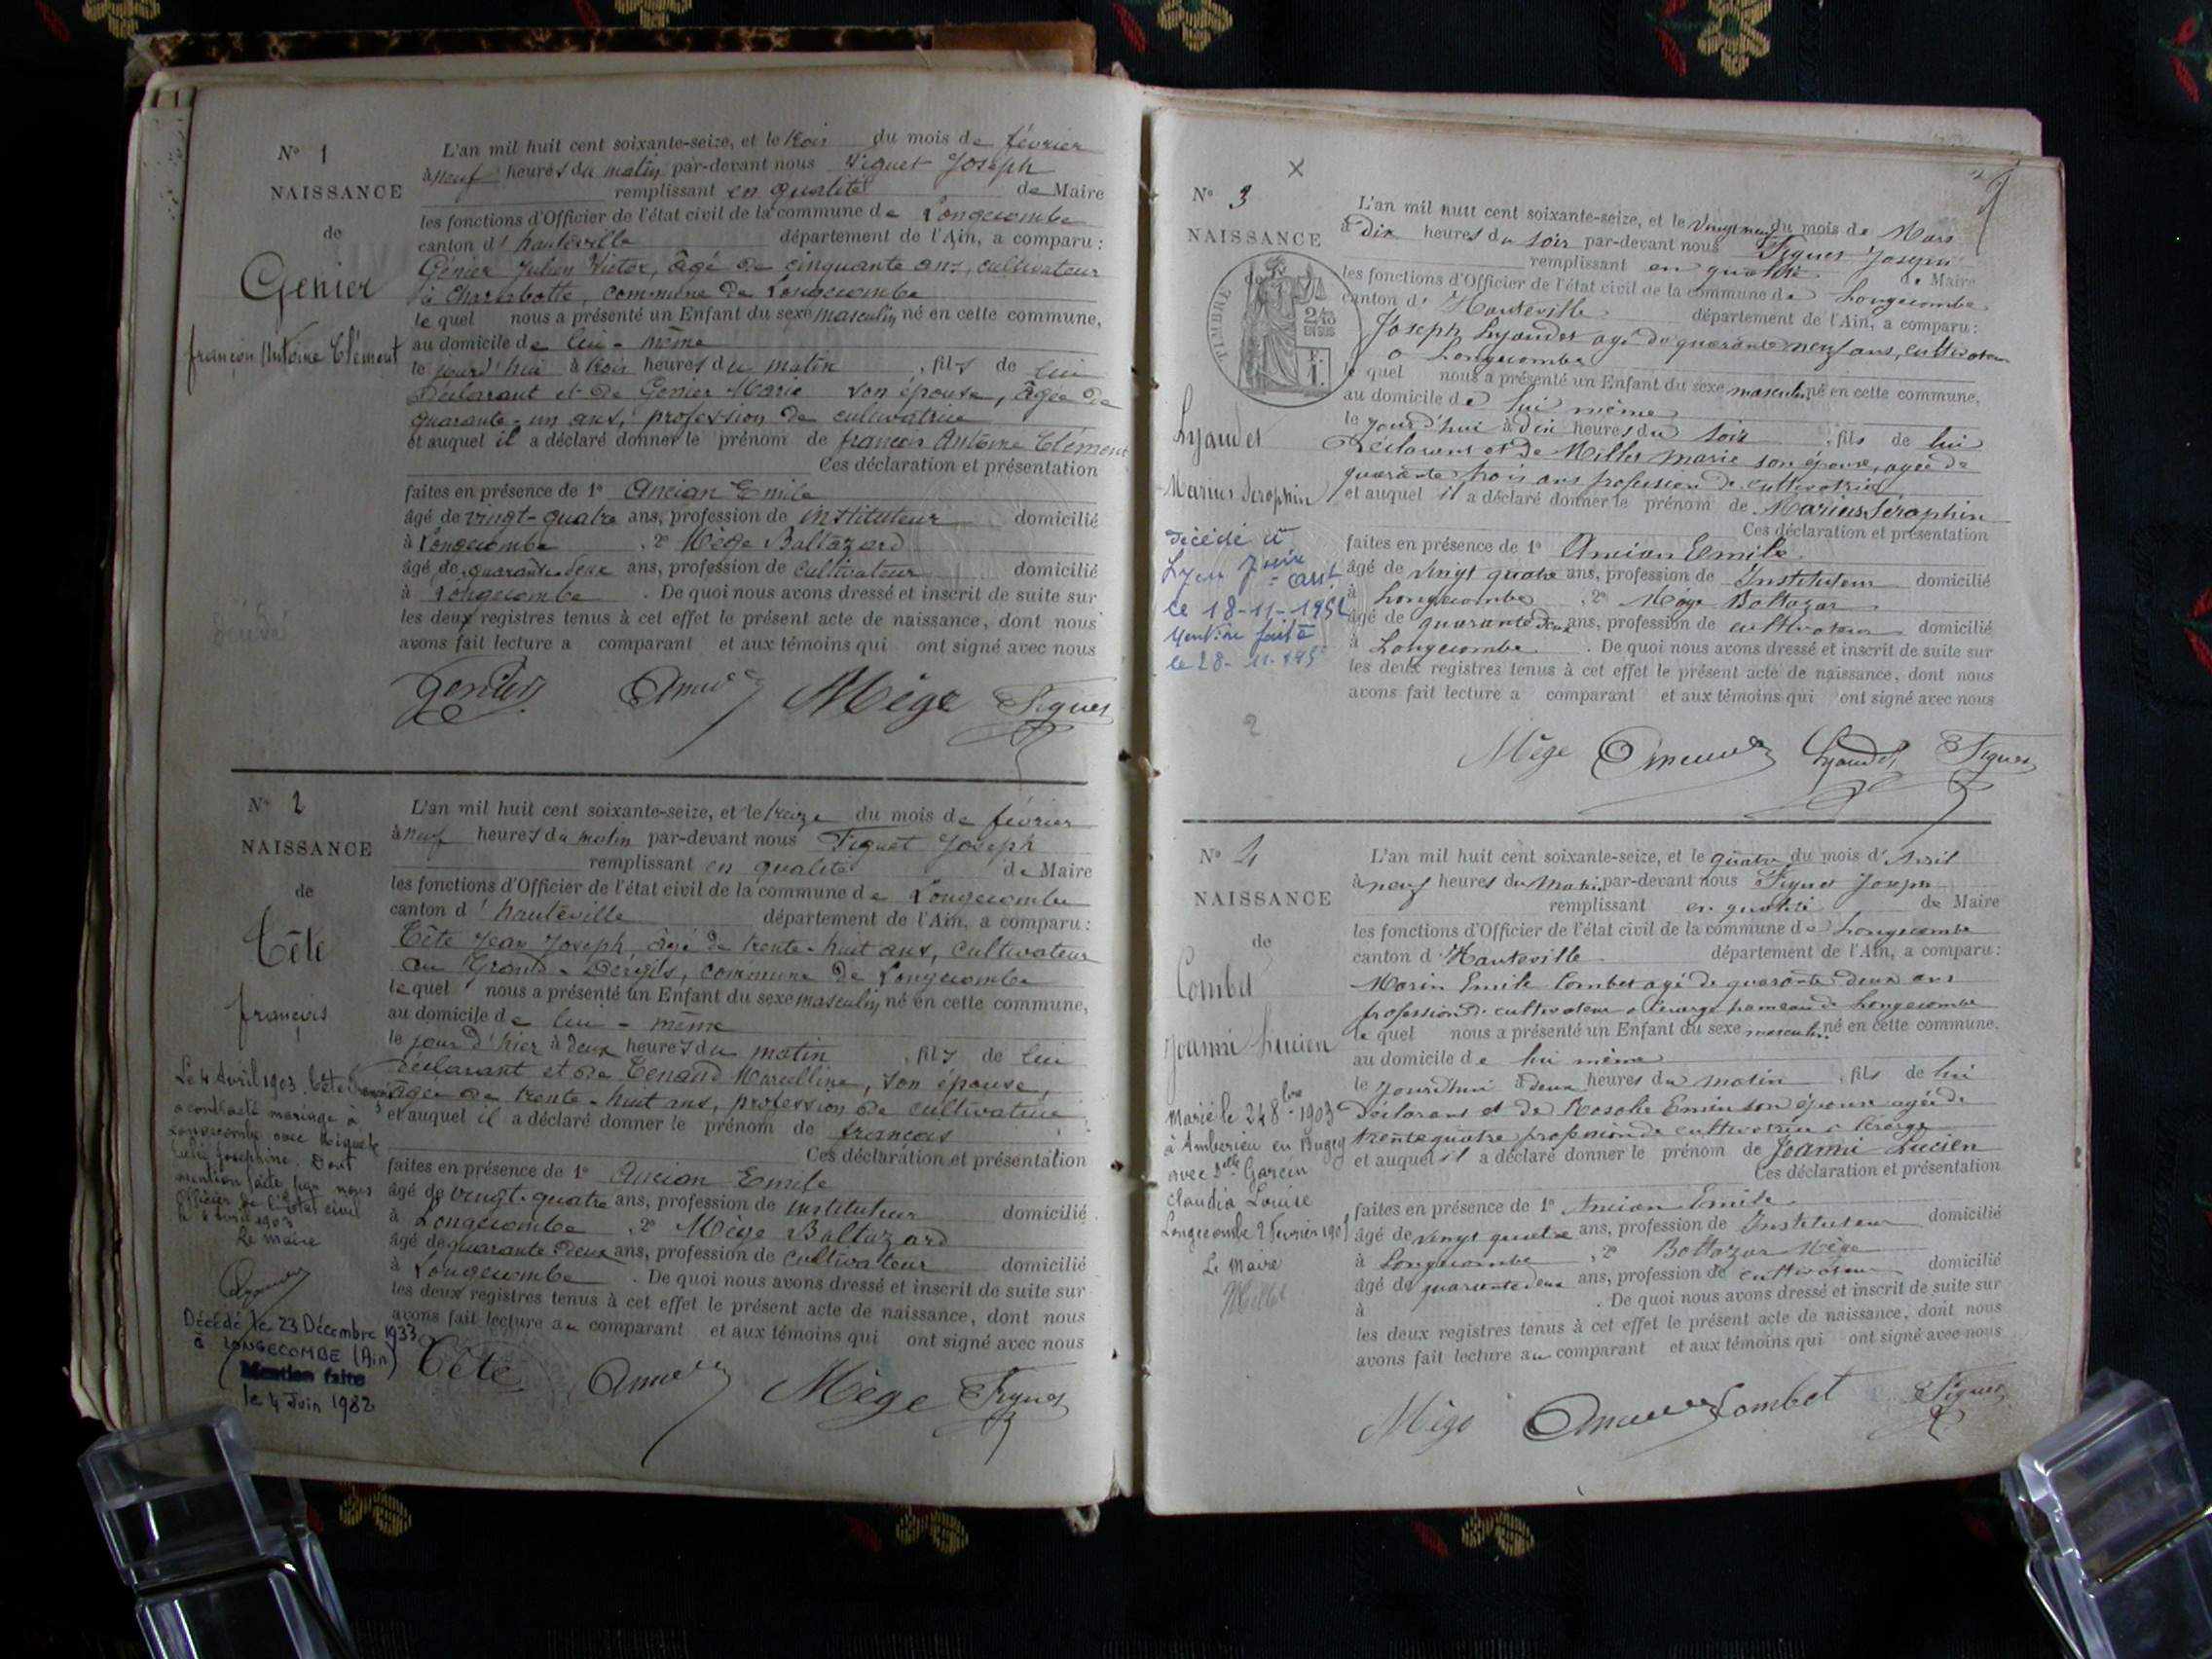 N° 1
NAISSANCE
de
Genier
françois Antoine Clément
L'an mil huit cent soixante-seize, et le trois du mois de février
à neuf heures du matin par-devant nous Figuet Joseph
remplissant en qualité de Maire
les fonctions d'Officier de l'état civil de la commune de Longecombe
canton d' hauteville département de l'Ain, a comparu :
Génier Julien Victor, âgé de cinquante ans, cultivateur
à Charabotte, commune de Longecombe
le quel nous a présenté un Enfant du sexe masculin né en cette commune,
au domicile de lui-même
le jourd'hui à trois heures du matin, fils de lui
Déclarant et de Genier Marie son épouse, âgée de
quarante-un ans, profession de cultivatrice
et auquel il a déclaré donner le prénom de françois Antoine Clément
Ces déclaration et présentation
faites en présence de 1° Ancian Emile
âgé de vingt-quatre ans, profession de instituteur domicilié
à Longecombe, 2° Mège Baltazard
âgé de quarante-deux ans, profession de cultivateur domicilié
à Longecombe. De quoi nous avons dressé et inscrit de suite sur
les deux registres tenus à cet effet le présent acte de naissance, dont nous
avons fait lecture a comparant et aux témoins qui ont signé avec nous
Genier Ancian Mège Figuet
N° 2
NAISSANCE
de
Tête
françois
L'an mil huit cent soixante-seize, et le treize du mois de février
à neuf heures du matin par-devant nous Figuet Joseph
remplissant en qualité de Maire
les fonctions d'Officier de l'état civil de la commune de Longecombe
canton d' hauteville département de l'Ain, a comparu :
Tête Jean Joseph, âgé de trente-huit ans, cultivateur
au Grand-Dergils, commune de Longecombe
le quel nous a présenté un Enfant du sexe masculin né en cette commune,
au domicile de lui-même
le jour d'hier à deux heures du matin, fils de lui
déclarant et de Tenand Marcelline, son épouse,
âgée de trente-huit ans, profession de cultivatrice
et auquel il a déclaré donner le prénom de françois
Ces déclaration et présentation
faites en présence de 1° Ancian Emile
âgé de vingt-quatre ans, profession de instituteur domicilié
à Longecombe, 2° Mège Baltazard
âgé de quarante-deux ans, profession de cultivateur domicilié
à Longecombe. De quoi nous avons dressé et inscrit de suite sur
les deux registres tenus à cet effet le présent acte de naissance, dont nous
avons fait lecture au comparant et aux témoins qui ont signé avec nous
Tête Ancian Mège Figuet
Le 4 Avril 1903, Tête françois
a contracté mariage à
Longecombe avec
Julie Josephine. Dont
mention faite par nous
Officier de l'Etat civil
le 4 avril 1903
Le Maire
Décédé le 23 Décembre 1933
à LONGECOMBE (Ain)
Mention faite
le 4 Juin 1982
N° 3
NAISSANCE
de
TIMBRE
2/10
EN SUS
Lyaudet
Marius Seraphin
L'an mil huit cent soixante-seize, et le vingt neuf du mois de Mars
à Dix heures du soir par-devant nous Figuet Joseph
remplissant en qualité de Maire
les fonctions d'Officier de l'état civil de la commune de Longecombe
canton d' Hauteville département de l'Ain, a comparu :
Joseph Lyaudet agé de quarante neuf ans, cultivateur
à Longecombe
le quel nous a présenté un Enfant du sexe masculin né en cette commune,
au domicile de lui même
le jourd'hui à Dix heures du soir, fils de lui
Déclarant et de Millet Marie son épouse, agée de
quarante trois ans profession de cultivatrice
et auquel il a déclaré donner le prénom de Marius Séraphin
Ces déclaration et présentation
faites en présence de 1° Ancian Emile
âgé de vingt quatre ans, profession de Instituteur domicilié
à Longecombe, 2° Mège Baltazar
âgé de quarante deux ans, profession de cultivateur domicilié
à Longecombe. De quoi nous avons dressé et inscrit de suite sur
les deux registres tenus à cet effet le présent acte de naissance, dont nous
avons fait lecture a comparant et aux témoins qui ont signé avec nous
Mège Ancian Lyaudet Figuet
Décédé à
Lyon
le 18-11-195
Mention faite
le 28-11-195
2
N° 4
NAISSANCE
de
Combet
Joanni Lucien
L'an mil huit cent soixante-seize, et le quatre du mois d'Avril
à neuf heures du Matin par-devant nous Figuet Joseph
remplissant en qualité de Maire
les fonctions d'Officier de l'état civil de la commune de Longecombe
canton d'Hauteville département de l'Ain, a comparu :
Marin Emile Combet agé de quarante deux ans
profession de cultivateur à Lérarge hameau de Longecombe
le quel nous a présenté un Enfant du sexe masculin né en cette commune,
au domicile de lui même
le jourd'hui à deux heures du matin, fils de lui
Déclarant et de son épouse agée de
trente quatre profession de cultivatrice à
et auquel il a déclaré donner le prénom de Joanni Lucien
Ces déclaration et présentation
faites en présence de 1° Ancian Emile
âgé de vingt quatre ans, profession de Instituteur domicilié
à Longecombe, 2° Baltazar Mège
âgé de quarante deux ans, profession de cultivateur domicilié
à . De quoi nous avons dressé et inscrit de suite sur
les deux registres tenus à cet effet le présent acte de naissance, dont nous
avons fait lecture au comparant et aux témoins qui ont signé avec nous
Mège Ancian Combet Figuet
Marié le 24 8bre 1903
à Amberieu en Bugey
avec Dlle Garcin
Claudia Louise
Longecombe 2 Février 190
Le Maire
Millet